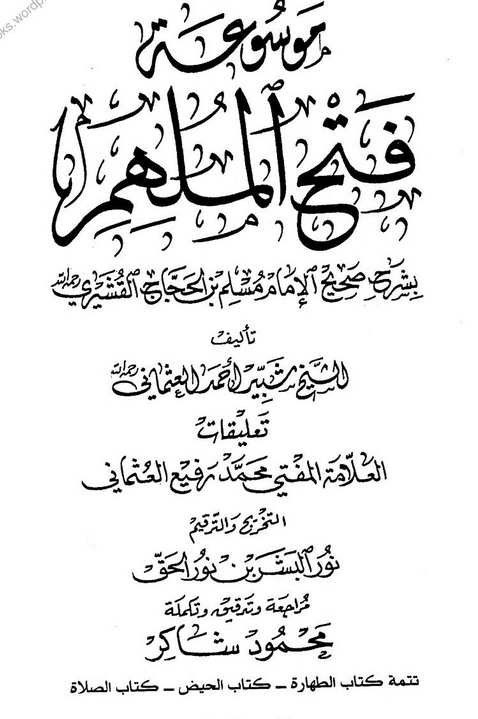 oks.wordp
مَوسُوعَة
فَتْحُ المُلْهِمِ
بِشَرْحِ صَحِيحِ الإِمَامِ مُسْلِم بْنِ الحَجَّاجِ القُشَيْرِي رحمه الله
تأليف
الشَّيخ شَبِّير أحمَد العُثماني رحمه الله
تَعليقات
العَلّامَة المُفتي محَمَّد رَفيع العُثماني
التخريج والترقيم
نُورُ البَشَر بن نُورِ الحَقّ
مُراجَعة وتدقيق وتكملة
مَحمُود شاكِر
تتمة كتاب الطهارة ــ كتاب الحيض ــ كتاب الصلاة